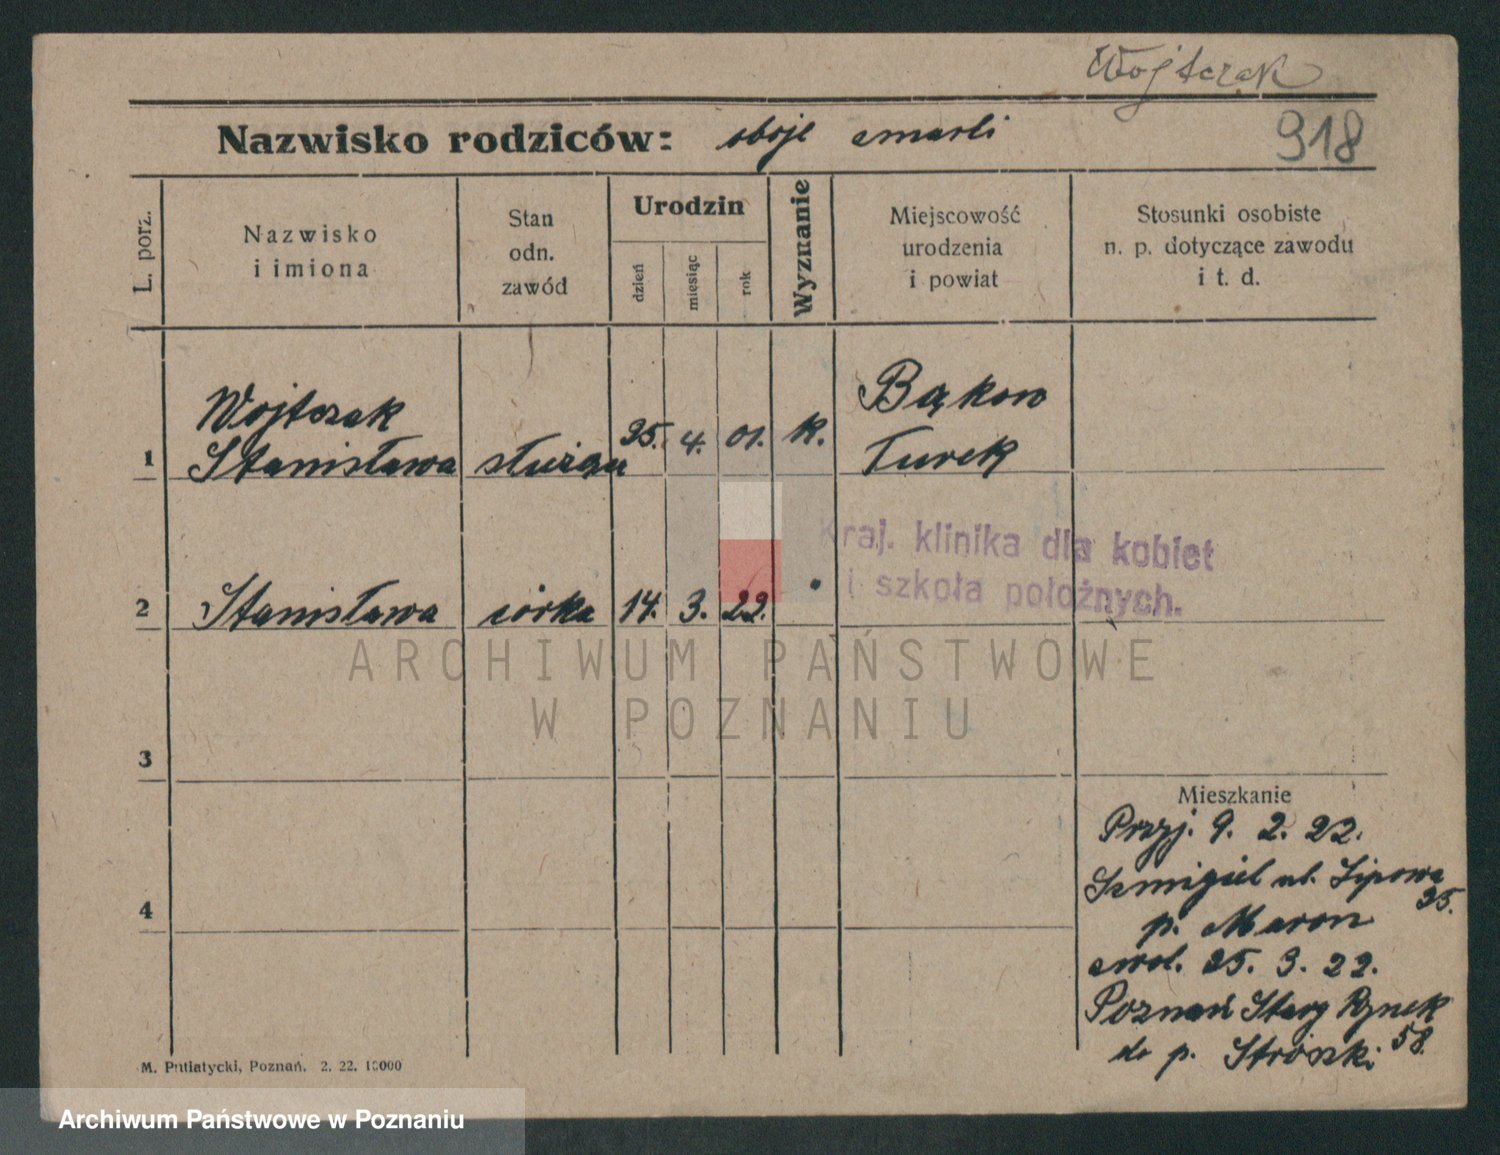 Wojtczak
918
Nazwisko rodziców: oboje zmarli
L. porz.
Nazwisko
i imiona
Stan
odn.
zawód
Urodzin
dzień
miesiąc
rok
Wyznanie
Miejscowość
urodzenia
i powiat
Stosunki osobiste
n. p. dotyczące zawodu
i t. d.
1
Wojtczak
Stanisława
służąca
25. 4. 01. k.
Bąkow
Turek
Kraj. klinika dla kobiet
i szkoła położnych.
2 Stanisława córka 14. 3. 22.
ARCHIWUM PAŃSTWOWE
W POZNANIU
3
4
Mieszkanie
Przyj. 9. 2. 22.
Szmigiel ul. Lipowa
25.
p. Maron
zwol. 25. 3. 22.
Poznań Stary Rynek
58.
do p.
M. Putiatycki, Poznań. 2. 22. 10000
Archiwum Państwowe w Poznaniu